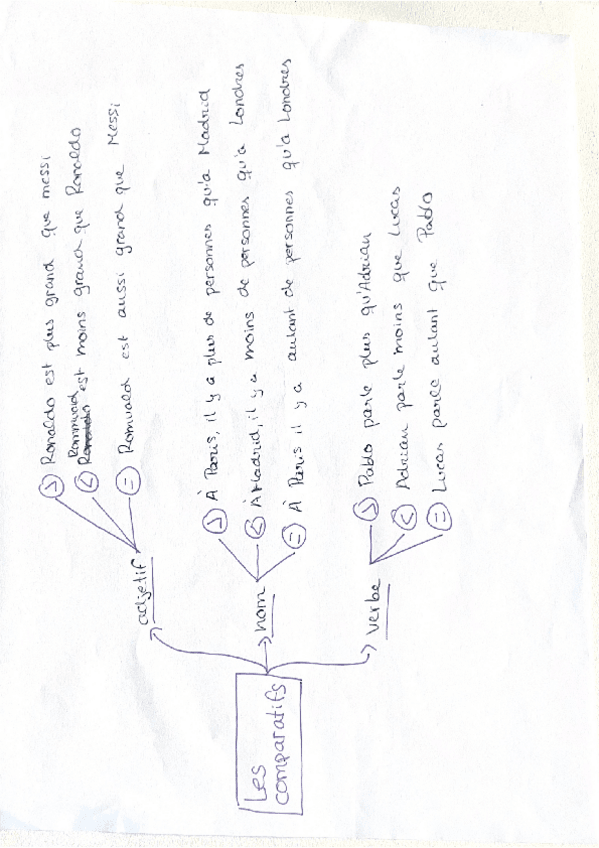 Les
comparatifs
adjetif
> Ronaldo est plus grand que messi
Romuald
< est moins grand que Ronaldo
= Romuald est aussi grand que Messi
nom
> À Paris, il y a plus de personnes qu'a Madrid
< À Madrid, il y a moins de personnes qu'a Londres
= À Paris il y a autant de personnes qu'a Londres
verbe
> Pablo parle plus qu'Adrian
< Adrian parle moins que Lucas
= Lucas parle autant que Pablo